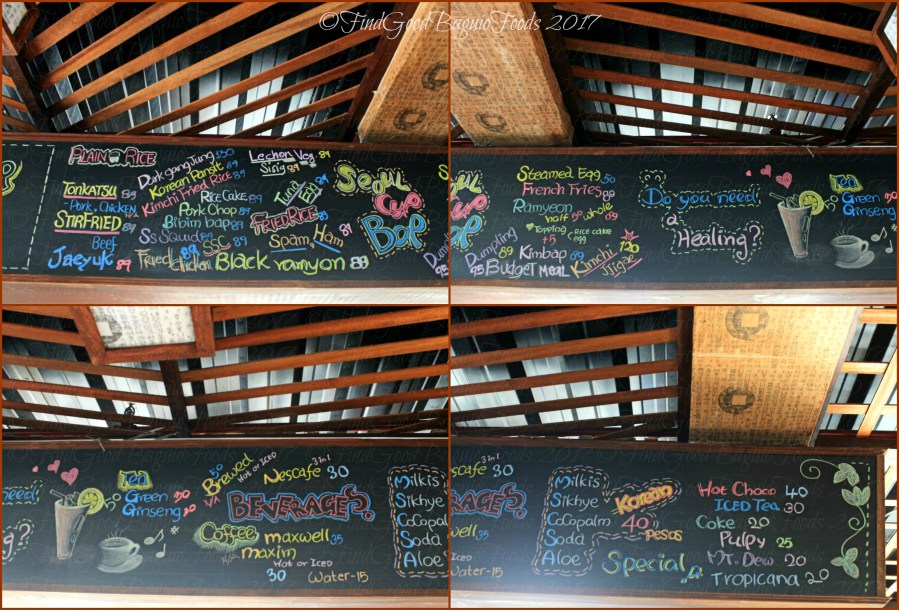 ©FindGoodBaguioFoods 2017
PLAIN RICE
TONKATSU 89
-Pork, Chicken
STIRFRIED 89
Beef
Jaeyuk 89
Korean Pansit 89
Kimchi Fried Rice 89
Rice Cake 89
Pork Chop 89
Bibim bap 89
Ss Squatter 89
SSC 89
Fried Chicken
Black ramyon 89
Lechon Veg. 89
Sisig 89
Tuna Egg 89
FRIED RICE 89
Spam Ham 89
Seoul
Cup
Bop
Dumpling
95
Steamed Egg 50
French Fries 89
Ramyeon
half 59 whole 89
Topping Rice cake
+5 egg
Kimbap 89
Dumpling
95 Budget Meal
Kimchi
Jjigae 120
Do you need
a
Healing?
Tea
Green
Ginseng
need,
g?
Tea
Green
Ginseng
Brewed 50
Hot or Iced
Nescafe 3in1 30
BEVERAGES.
Coffee
maxwell 35
maxim
Hot or Iced
30
Water-15
Milkis
Sikhye
CoCopalm
Soda
Aloe
scafe 3in1 30
RAGES.
well 35
or Iced
Water-15
Milkis
Sikhye
CoCopalm
Soda
Aloe
Korean
40
Pesos
Special
Hot Choco 40
ICED Tea 30
Coke 20
Pulpy 25
MT. Dew 20
Tropicana 20